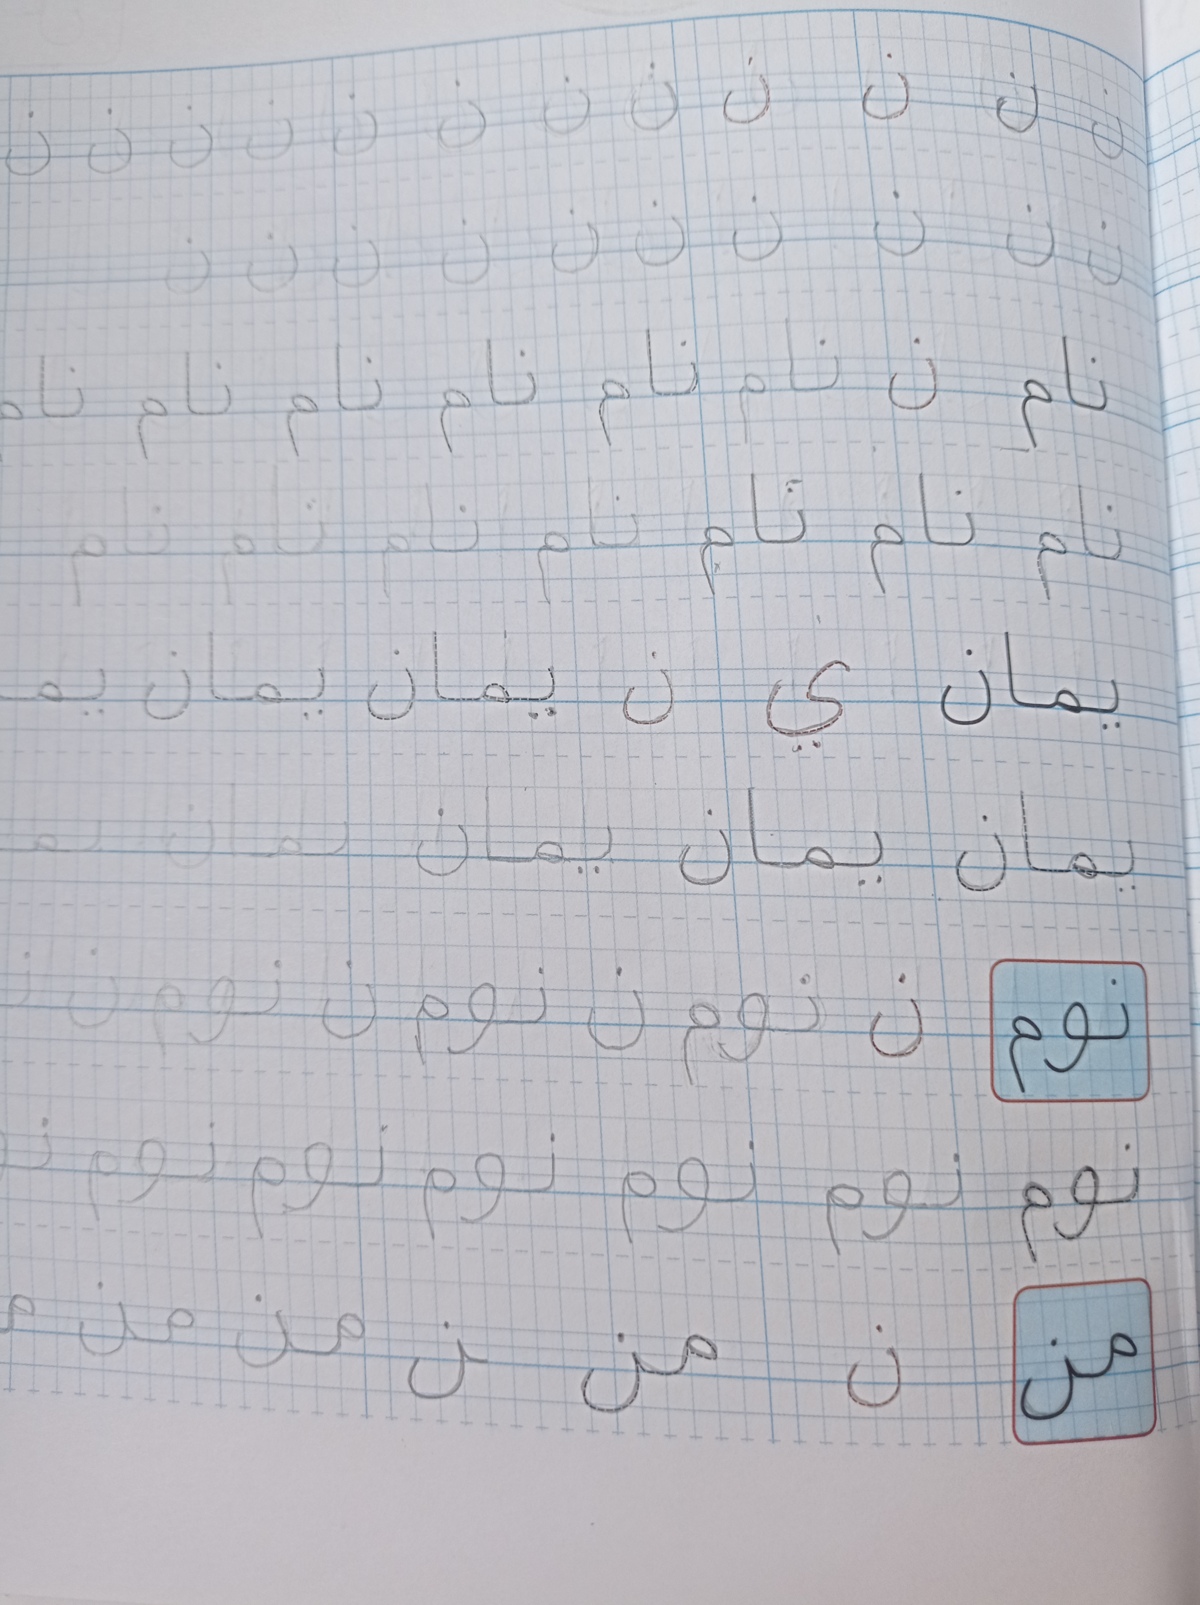 ن ن ن ن ن ن ن ن ن ن ن ن
ن ن ن ن ن ن ن ن ن ن
نام ن نام نام نام نام نام نام
نام نام نام نام نام نام نام
يمان ي ن يمان يمان يمـ
يمان يمان يمان يمان يمـ
نوم ن نوم ن نوم ن نوم ن
نوم نوم نوم نوم نوم نوم
من ن من ـن من من